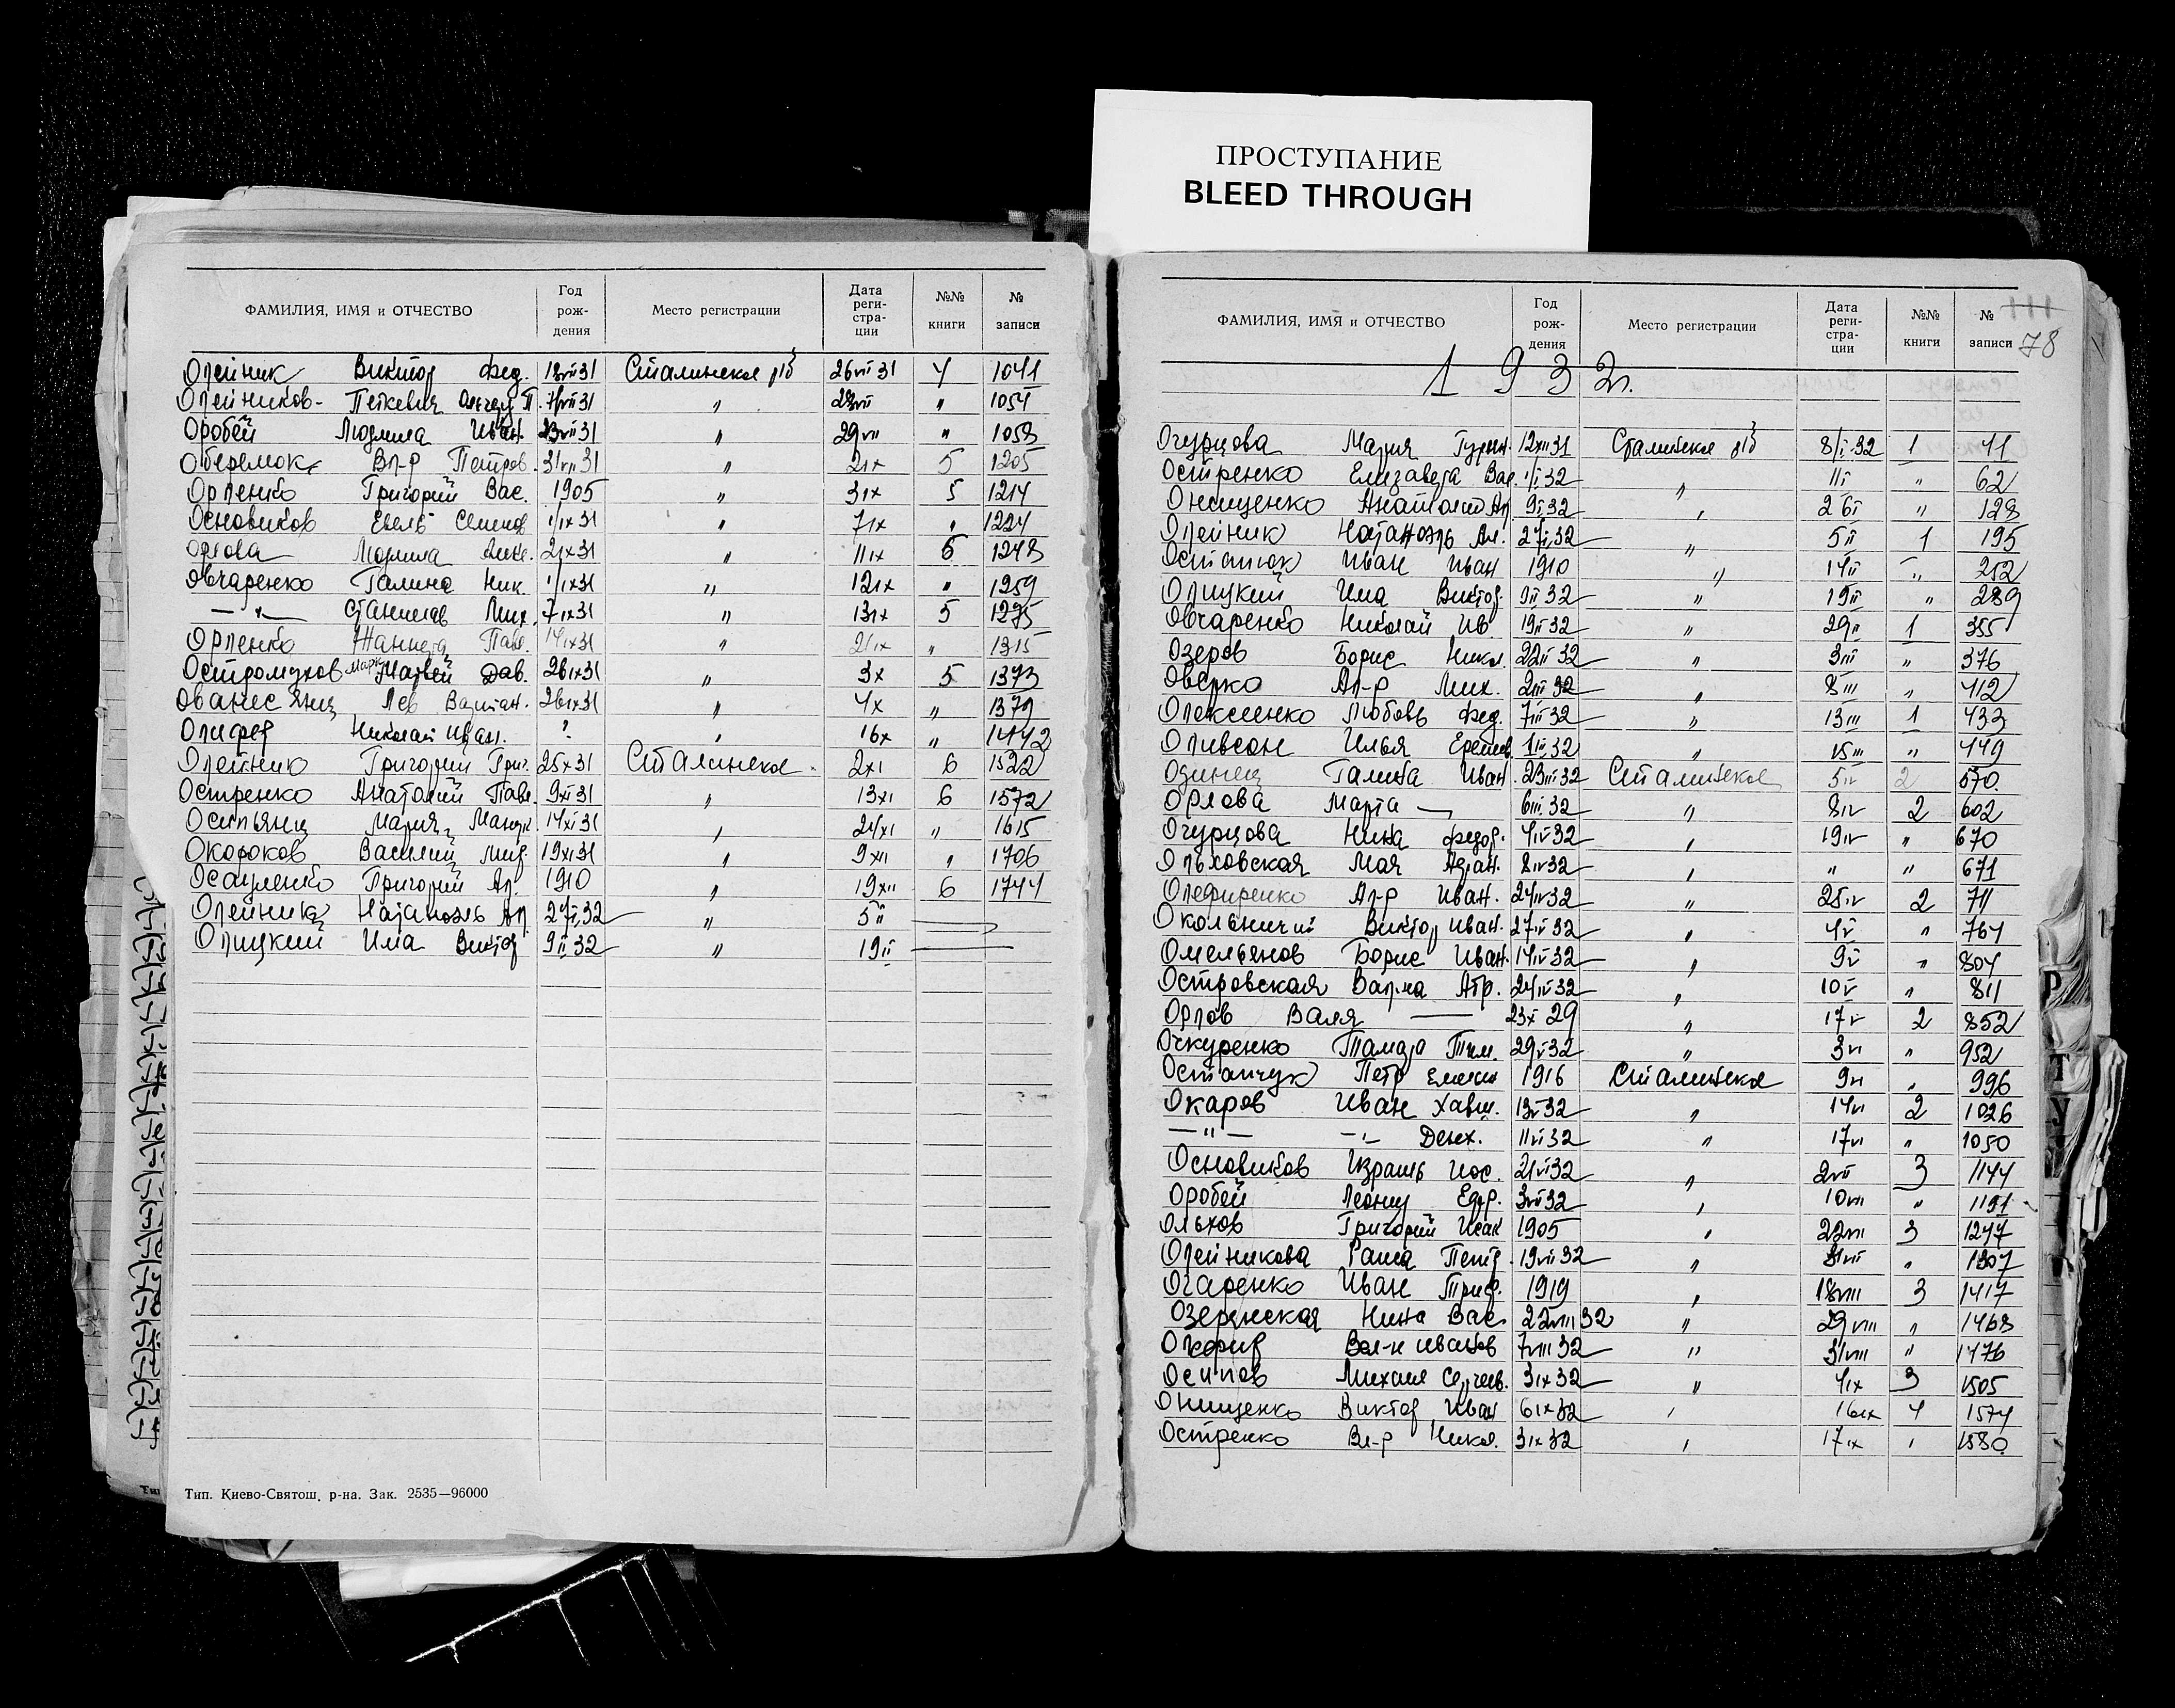 ПРОСТУПАНИЕ
BLEED THROUGH
ФАМИЛИЯ, ИМЯ и ОТЧЕСТВО Год рождения Место регистрации Дата регистрации №№ книги № записи
Олейник Виктор Фед. 18VII31 Сталинское р/б 26VII31 4 1041
Олейников- Петкевич П. VII31 " 28VII " 1054
Оробей Людмила Иван. 23VII31 " 29VII " 1058
Оберемок Вл-р Петров. 31VII31 " 2IX 5 1205
Орленко Григорий Вас. 1905 " 3IX 5 1214
Основиков Евель Семенов 1/IX31 " 7IX " 1224
Орлова Людмила 2IX31 " 11IX 5 1248
Овчаренко Галина Ник. 1/IX31 " 12IX " 1259
—"— Станислав Мих. 7IX31 " 13IX 5 1275
Орленко Жаннета Павл. 14IX31 " 21IX " 1315
Остромухов Марк Матвей Дав. 26IX31 " 3X 5 1373
Ованесянц Лев Вартан. 26IX31 " 4X " 1379
Олифер Николай Иван. ? " 16X " 1442
Олейник Григорий Григ. 25X31 Сталинское 2XI 6 1522
Остренко Анатолий Павл. 9XI31 " 13XI 6 1572
Осипьянц Мария Манук. 14XI31 " 24XI " 1615
Окороков Василий Мит. 19XI31 " 9XII " 1706
Осауленко Григорий Ал. 1910 " 19XII 6 1744
Олейник Натаноэль Ал. 27I32 " 5II
Олицкий Има Виктор 9II32 " 19II
Тип. Киево-Святош. р-на. Зак. 2535—96000
ФАМИЛИЯ, ИМЯ и ОТЧЕСТВО Год рождения Место регистрации Дата регистрации №№ книги № записи
78
1932г.
Огурцова Мария 12XII31 Сталинское р/б 8/I-32 1 41
Остренко Елизавета Вас. 1/I32 " 11I " 62
Онищенко Анатолий Ал 9I32 " 26I " 128
Олейник Натаноэль Ал. 27I32 " 5II 1 195
Остапюк Иван Иван 1910 " 14II " 252
Олицкий Има Виктор 9II32 " 19II " 289
Овчаренко Николай Ив 19II32 " 29II 1 355
Озеров Борис Никол. 22II32 " 3III " 376
Оверко Ал-р Мих. 2III32 " 8III " 412
Олексеенко Любовь Фед. 7III32 " 13III 1 433
Оливсон Илья Еремеев 1III32 " 15III " 449
Одинец Галина Иван. 23III32 Сталинское 5IV 2 570
Орлова Марта — 6III32 " 8IV 2 602
Огурцова Нина Федор. 4IV32 " 19IV " 670
Ольховская Мая Адам. 8IV32 " " " 671
Олефиренко Ал-р Иван. 24IV32 " 25IV 2 711
Окольничий Виктор Иван. 27IV32 " 4V " 764
Омельянов Борис Иван. 14IV32 " 9V " 804
Островская Вал-на Абр. 24IV32 " 10V " 811
Орлов Валя — 23X29 " 17V 2 852
Очкуренко Тамара Тим. 29V32 " 3VI " 952
Остапчук Петр Емельян 1916 Сталинское 9VI " 996
Окаров Иван Хавш. 13V32 " 14VI 2 1026
—"— —"— Денх. 11VI32 " 17VI " 1050
Основиков Израиль Иос. 21VI32 " 2VII 3 1144
Оробей Леонид Ефр. 3VII32 " 10VII " 1191
Ольхов Григорий Исак 1905 " 22VII 3 1247
Олейникова Раиса Петр. 19VII32 " 31VII " 1307
Огаренко Иван Триф. 1919 " 18VIII 3 1417
Озерянская Нина Вас. 22VIII32 " 29VIII " 1468
Вал-н Иванов 7VIII32 " 31VIII " 1476
Осипов Михаил Сергеев. 3IX32 " 4IX 3 1505
Онищенко Виктор Иван 6IX32 " 16IX 4 1574
Остренко Вл-р Никол. 3IX32 " 17IX " 1580